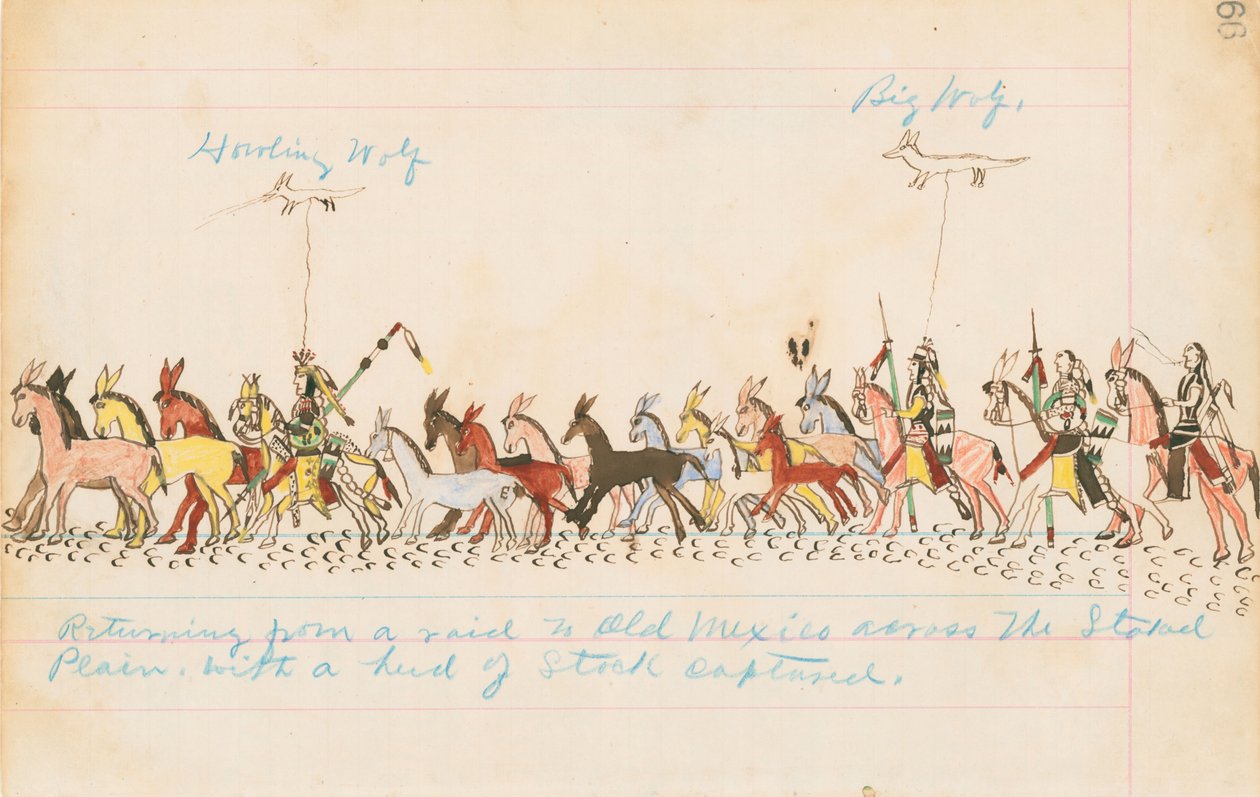 66
Big Wolf.
Howling Wolf
Returning from a raid to Old Mexico across The Staked
Plain. With a herd of Stock captured.
E